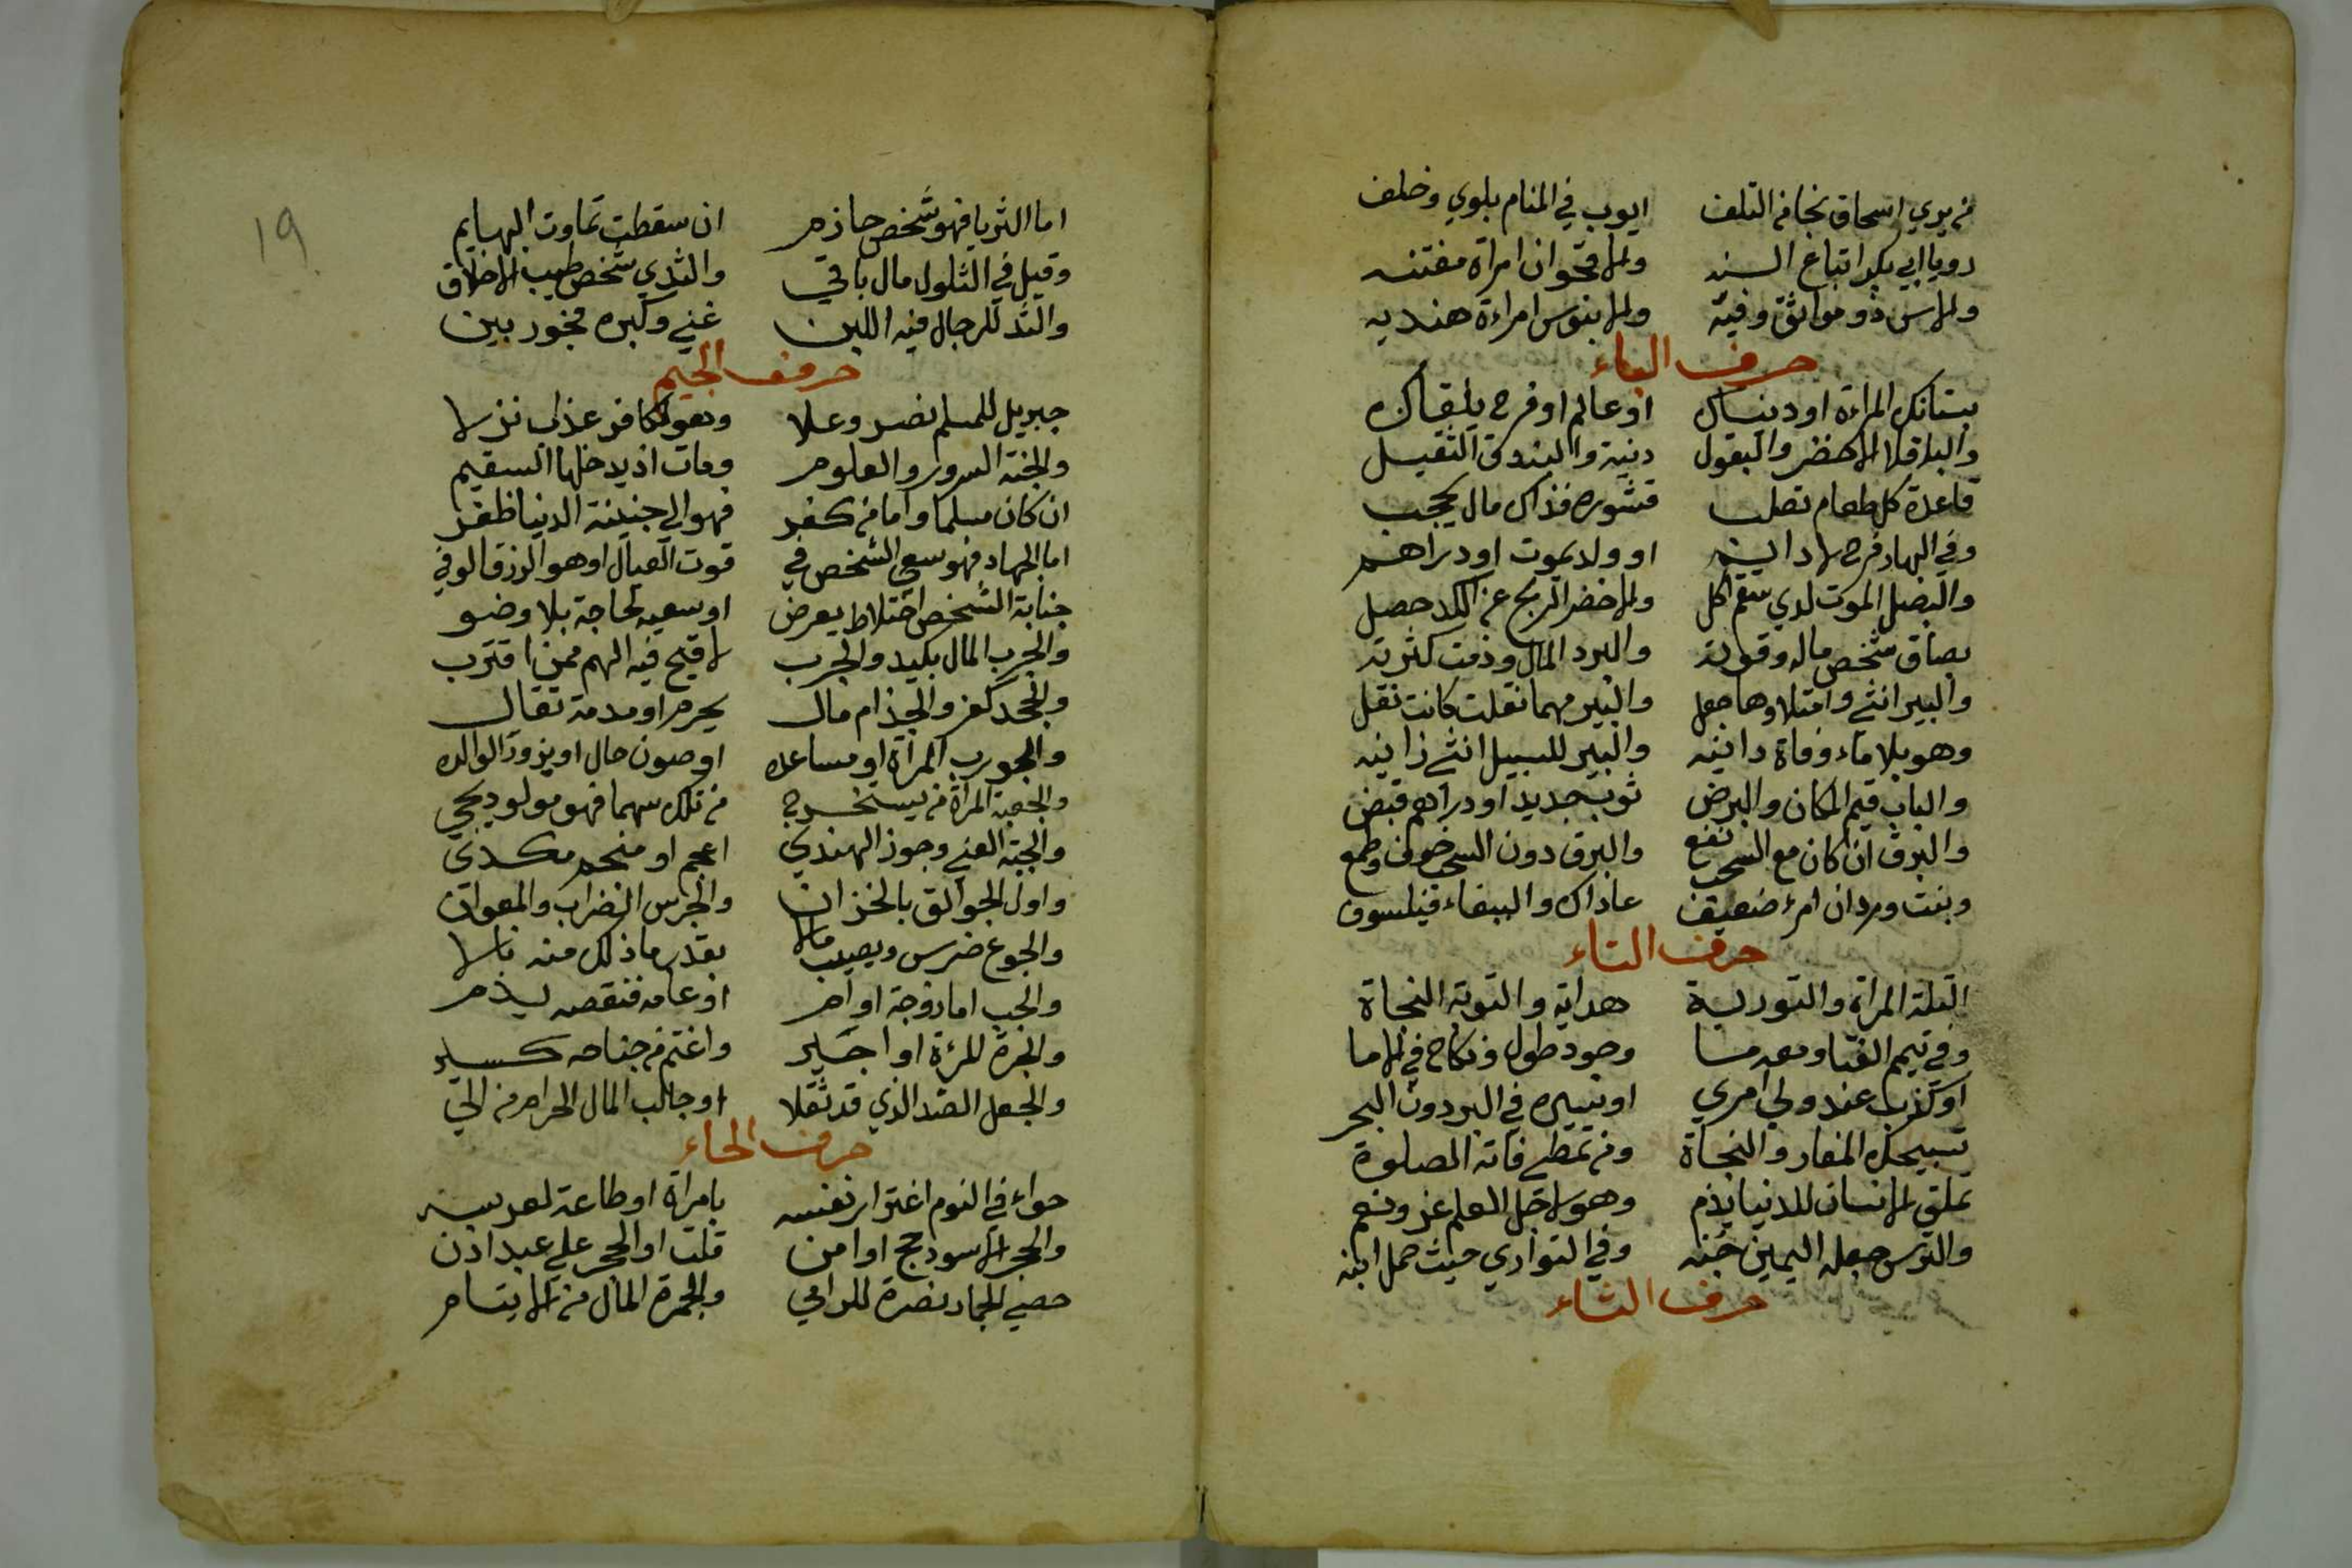 من يري اسحاق نجا من التلف ايوب في المنام بلوي وخلف
رويا ابي بكر اتباع السنه والاقحوان امراة مفتنه
والاس ذو مواثق وفيه والابنوس امراءة هنديه
حرف الباء
بستانك المراءة او دنياك او عالم او فرح يلقاك
والباقلا الاخضر والبقول دنية والبندق الثقيل
قاعدة كل طعام تصلب قشوره فذاك مال يحجب
وفي البهار فرح لا دايم او ولد يموت او دراهم
والبصل الموت لدي سقم اكل والاخضر الربح عن الكد حصل
بصاق شخص ماله وقوته والبرد المال وذمت كثرته
والبير انثي وامتلاوها جعل والبير مهما نقلت كانت نقل
وهو بلا ماء وفاة دانيه والبير للسبيل انثي زانيه
والباب قيم المكان والبرض ثوب جديد او دراهم قبض
والبرق ان كان مع السحب نفع والبرق دون السحب خوف وطمع
وبنت وردان امرء ضعيف عاداك والببغاء فيلسوف
حرف التاء
التلة المراة والتورية هداية والتوبة النجاة
وفي تيمم الفتا ومعه ما وجود طول ونكاح في الاما
او كذب عند ولي امري او سيره في البر دون البحر
تسبيحك المفار والنجاة ومن تمطي فاته الصلوة
تملق الانسان للدنيا يذم وهو لاجل العلم عز ونعم
والترس جعله اليمين جنه وفي التواري حيث حمل ابنه
حرف الثاء
١٩
اما الثريا فهو شخص حازم ان سقطت تماوت البهايم
وقيل في الثلول مال باقي والثدي شخص طيب الاخلاق
والثد للرجال فيه اللبن غني وكبره فجور بين
حرف الجيم
جبريل للمسلم نصر وعلا وهو لكافر عذاب نزلا
والجنة السرور والعلوم ومات اذ يدخلها السقيم
ان كان مسلما واما من كفر فهو الي جنينة الدنيا ظفر
اما الجهاد فهو سعي الشخص في قوت العيال او هو الرزق الوفي
جنابة الشخص اختلاط يعرض او سعيه لحاجة بلا وضو
والجرب المال بكيد والجرب لا قيح فيه الهم ممن اقترب
والجحد كفر والجذام مال يحرم او مدمة تقال
والجورب المراة او مساعده او صون حال او يزور الوالده
والجعبة المراة من يستخرج من تلك سهما فهو مولود يجي
والجبة الغني وجوز الهندي اعجم او منجم مكدي
واول الجوالق بالخزان والجرس الضراب والمعوان
والجوع ضرس ويصيب مالا بقدر ما ذلك منه نالا
والجب اما زوجة او ام او عامه فنقصه يذم
والجرة المرءة او اجير واغتم من جناحه كسير
والجعل الضد الذي قد ثقلا او جالب المال الحرام من الي
حرف الحاء
حواء في النوم اغترار نفسه بامراة او طاعة لعرسه
والحجر الاسود حج او امن قلت او الحجر علي عبد اذن
حصي الجمار نصرة للرامي والجمرة المال من الايتام